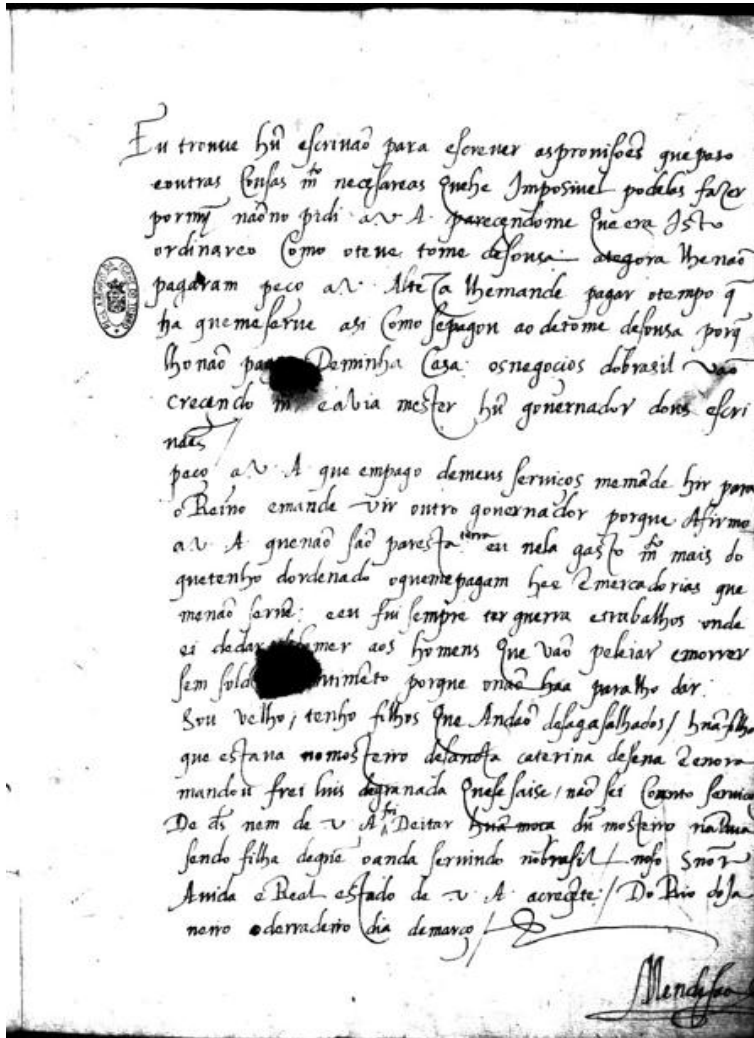 Eu trouue hũ escriuaõ para escreuer asprouisoẽs que paso
eoutras Cousas mto necesareas Quehe Imposiuel podelas fazer
pormỹ naõno pidi a.v.A. parecendome Que era Isto
ordinareo Como oteue tome desousa ategora lhenaõ
pagaram peco a.v. Alteza lhemande pagar otempo q̃
ha quemeserue asi Como sepagou ao detome desousa porq̃
lhonaõ Deminha Casa. osnegocios dobrasil vaõ
crecendo eavia mester hũ gouernador dous escri
uaẽs /
peco a.v.A que empago demeus seruicos memãde hir para
o Reino emande vir outro gouernador porque Afirmo
a.v.A quenaõ saõ paresta terra eu nela gasto mto mais do
quetenho dordenado oquemepagam hee ẽmercadorias que
menaõ seruẽ. eeu fui sempre ter guerra etrabalhos onde
ei dedar aos homens Que vaõ peleiar emorrer
sem porque onaõ haa paralho dar.
Sou velho, tenho filhos Que Andaõ desagasalhados / hũa filha
que estaua nomosteiro desancta caterina desena
mandou frei luis degranada Quese saise / naõ sei Quanto seruico
De ds nem de v.A. foi Deitar hũa moca dũ mosteiro narua
sendo filha dequẽ oanda seruindo nobrasil / noso Snõr
Auida e Real estado de v.A. acrecẽte / Do Rio deJa
neiro oderradeiro dia demarço /
Mendesaa